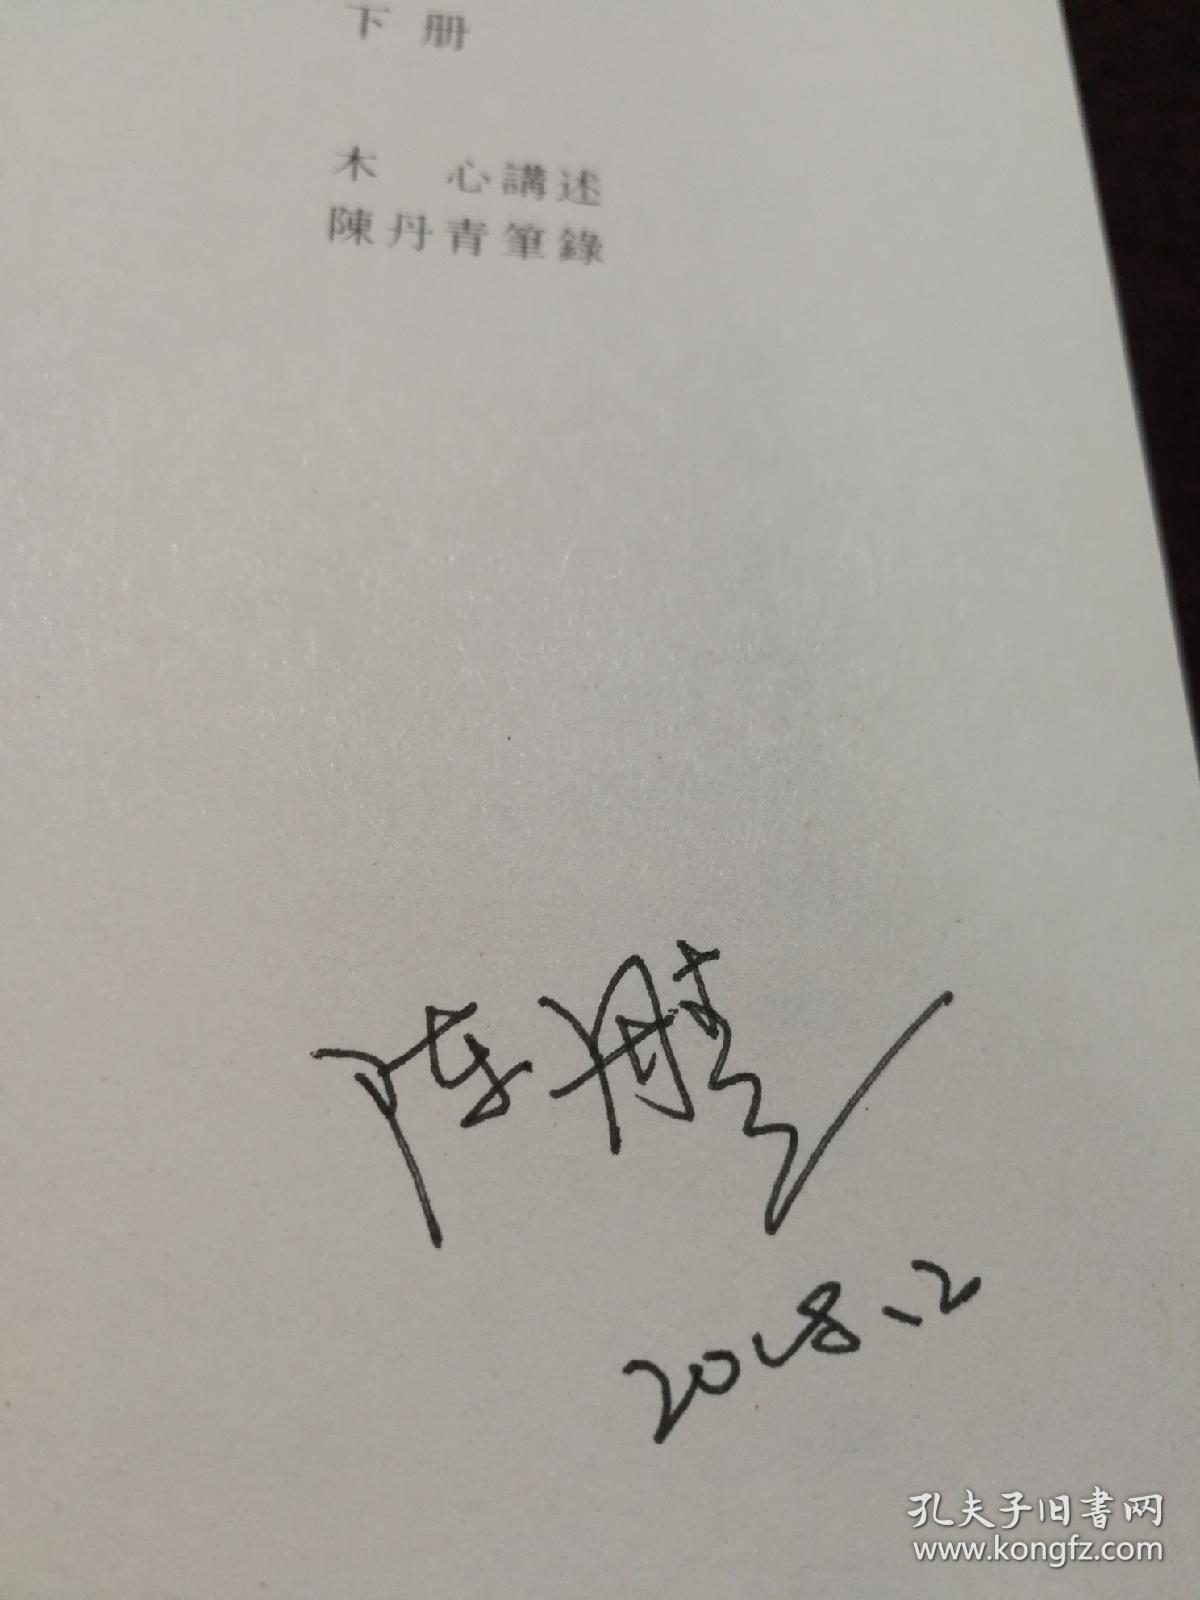 下册
木 心講述
陳丹青筆錄
陈丹青
2018.12
孔夫子旧书网
www.kongfz.com